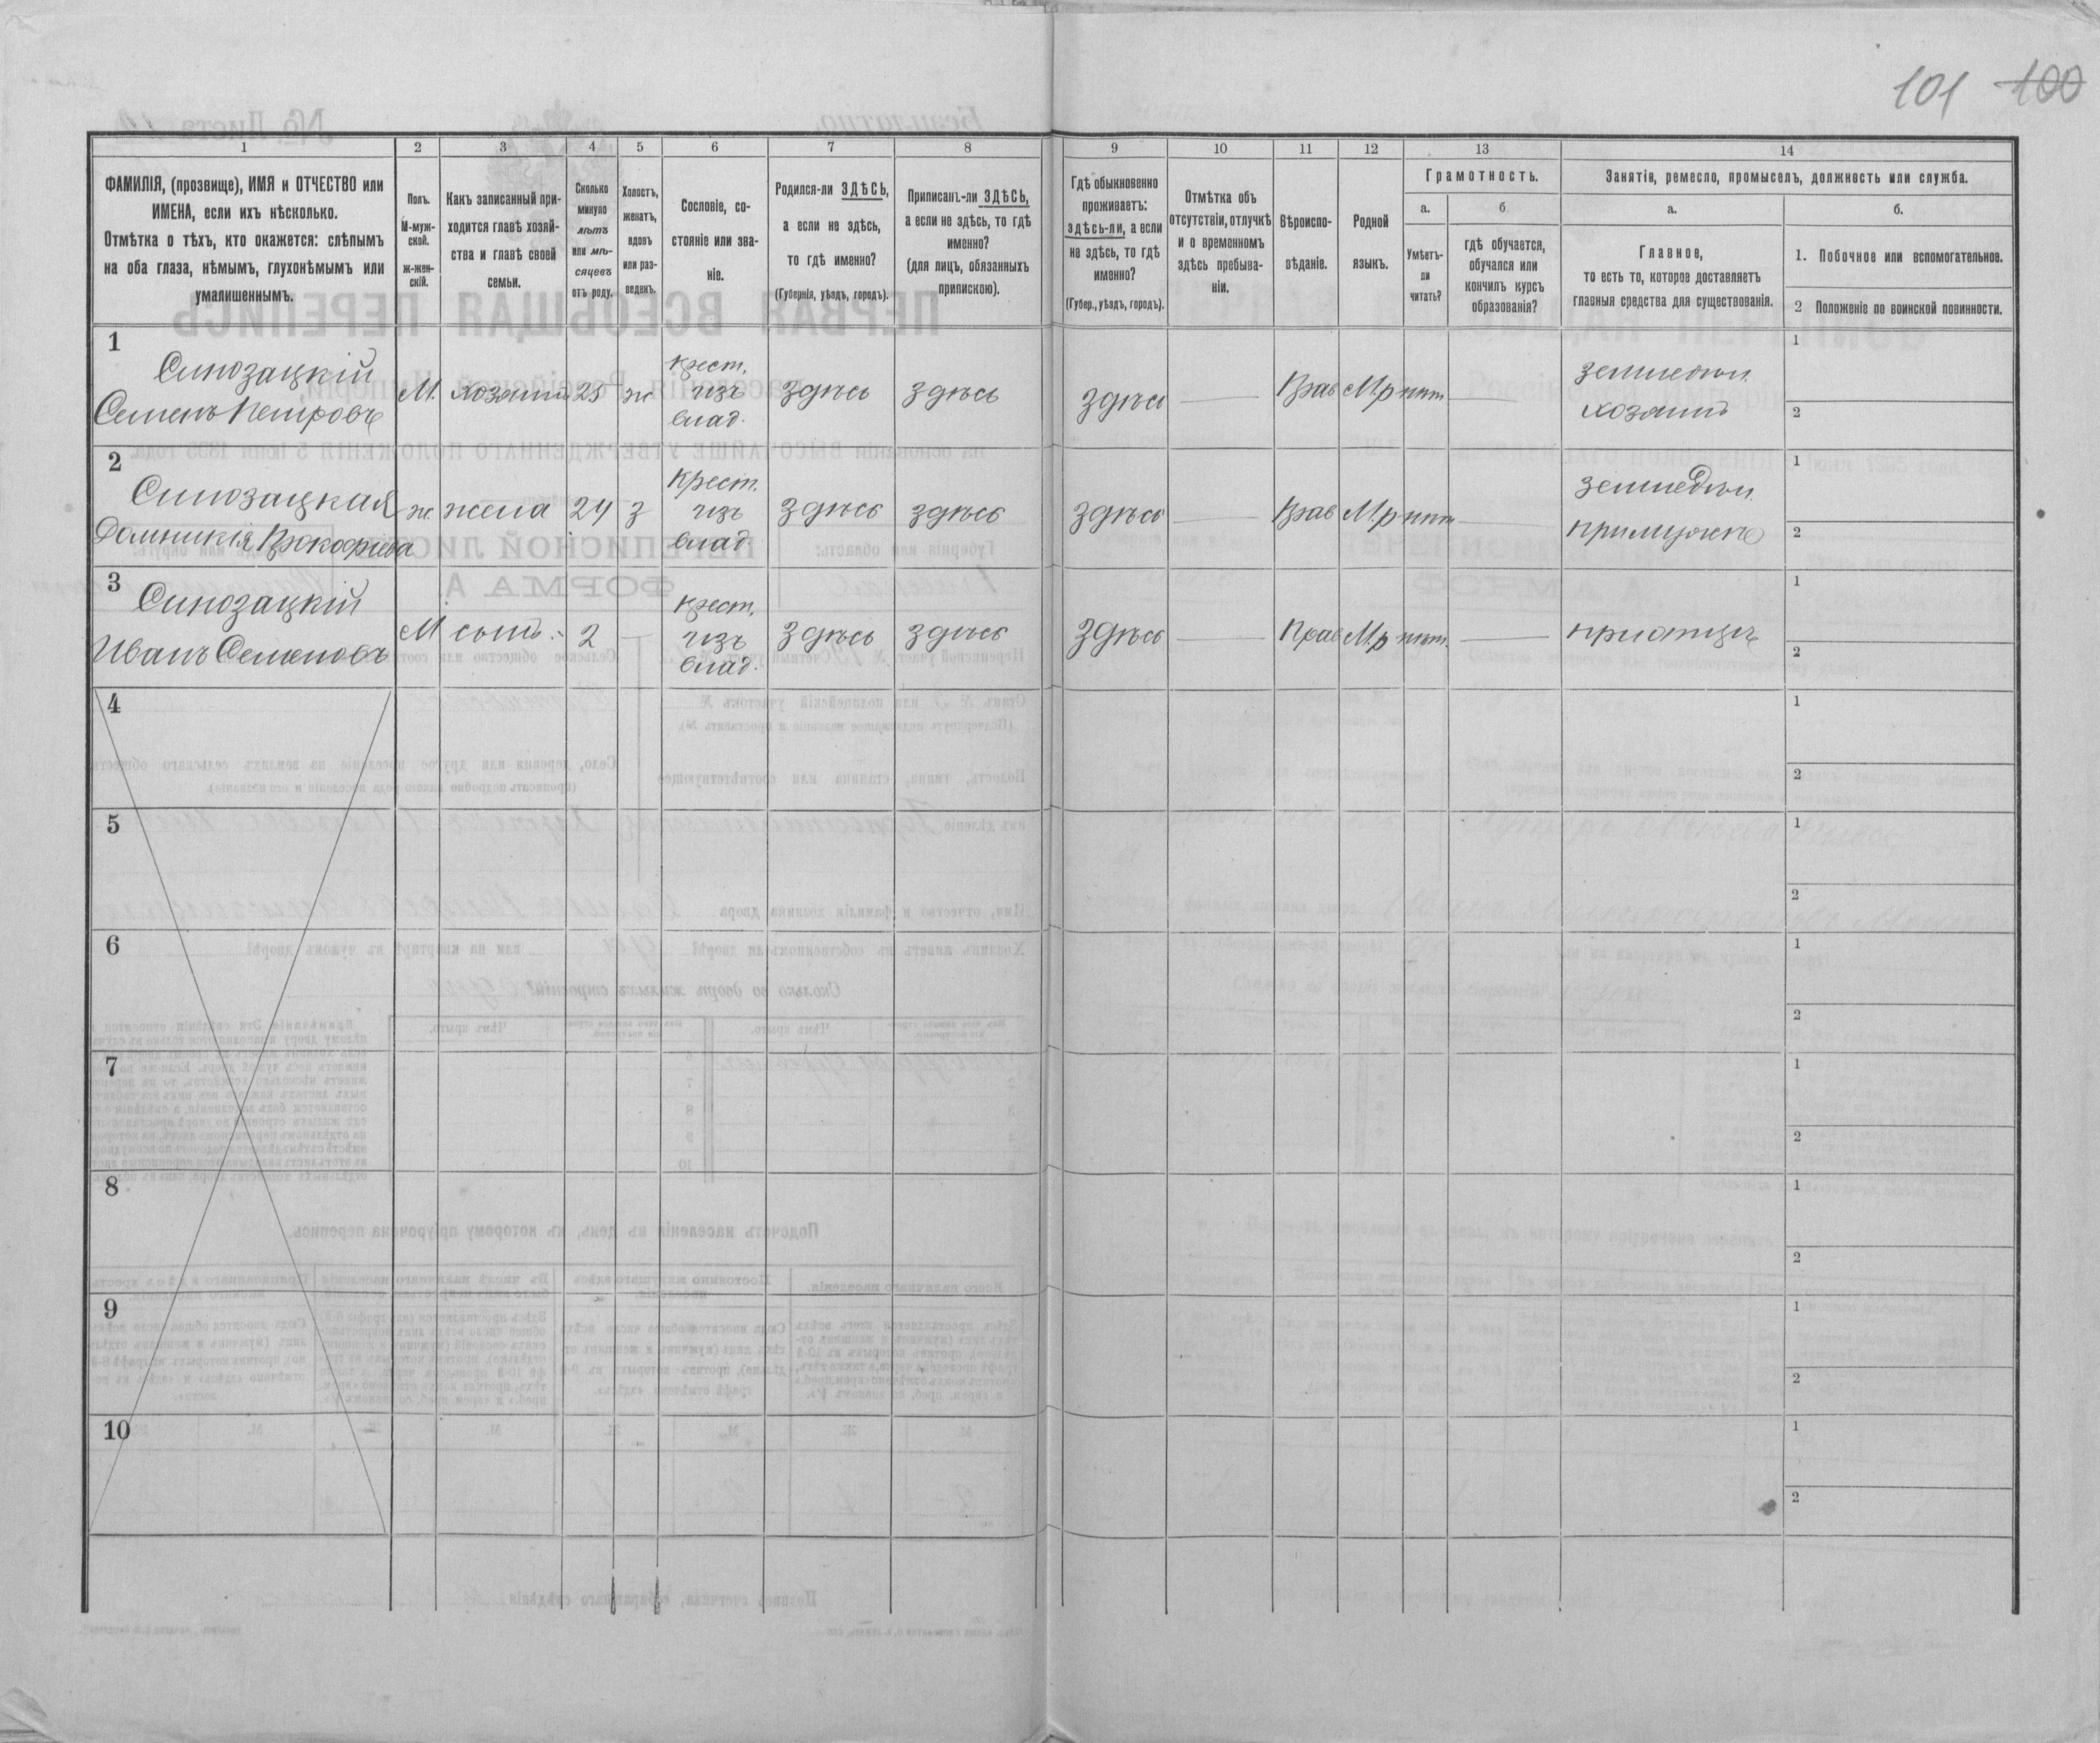 101 100
1 2 3 4 5 6 7 8 9 10 11 12 13 14
ФАМИЛІЯ, (прозвище), ИМЯ и ОТЧЕСТВО или
ИМЕНА, если ихъ нѣсколько.
Отмѣтка о тѣхъ, кто окажется: слѣпымъ
на оба глаза, нѣмымъ, глухонѣмымъ или
умалишеннымъ.
Полъ.
М-муж-
ской.
ж-жен-
скій.
Какъ записанный при-
ходится главѣ хозяй-
ства и главѣ своей
семьи.
Сколько
минуло
лѣтъ
или мѣ-
сяцевъ
отъ роду.
Холостъ,
женатъ,
вдовъ
или раз-
веденъ.
Сословіе, со-
стояніе или зва-
ніе.
Родился-ли ЗДѢСЬ,
а если не здѣсь,
то гдѣ именно?
(Губернія, уѣздъ, городъ).
Приписанъ-ли ЗДѢСЬ,
а если не здѣсь, то гдѣ
именно?
(для лицъ, обязанныхъ
припискою).
Гдѣ обыкновенно
проживаетъ:
здѣсь-ли, а если
не здѣсь, то гдѣ
именно?
(Губер., уѣздъ, городъ).
Отмѣтка объ
отсутствіи, отлучкѣ
и о временномъ
здѣсь пребыва-
ніи.
Вѣроиспо-
вѣданіе.
Родной
языкъ.
Грамотность.
а.
Умѣетъ-
ли
читать?
б
гдѣ обучается,
обучался или
кончилъ курсъ
образованія?
Занятіе, ремесло, промыселъ, должность или служба.
а.
Главное,
то есть то, которое доставляетъ
главныя средства для существованія.
б.
1. Побочное или вспомогательное.
2 Положеніе по воинской повинности.
1
Синозацкій
Семенъ Петровъ
М. хозяинъ 25 ж
крест.
изъ
влад.
здѣсь здѣсь здѣсь Прав М.р нѣт
земледѣл.
хозяинъ
1
2
2
Синозацкая
Домникія Прокофіева
ж. жена 24 з
крест.
изъ
влад.
здѣсь здѣсь здѣсь Прав М.р нѣт
земледѣл.
при мужѣ
1
2
3
Синозацкій
Иванъ Семеновъ
М сынъ 2
крест.
изъ
влад.
здѣсь здѣсь здѣсь Прав М.р нѣт.
при отцѣ
1
2
4
1
2
5
1
2
6
1
2
7
1
2
8
1
2
9
1
2
10
1
2